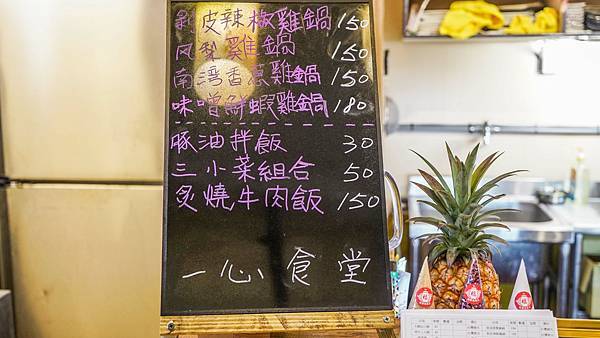 剝皮辣椒雞鍋 150
凤梨雞鍋 150
南湾香蔥雞鍋 150
味噌鮮蝦雞鍋 180
豚油拌飯 30
三小菜組合 50
炙燒牛肉飯 150
一心食堂